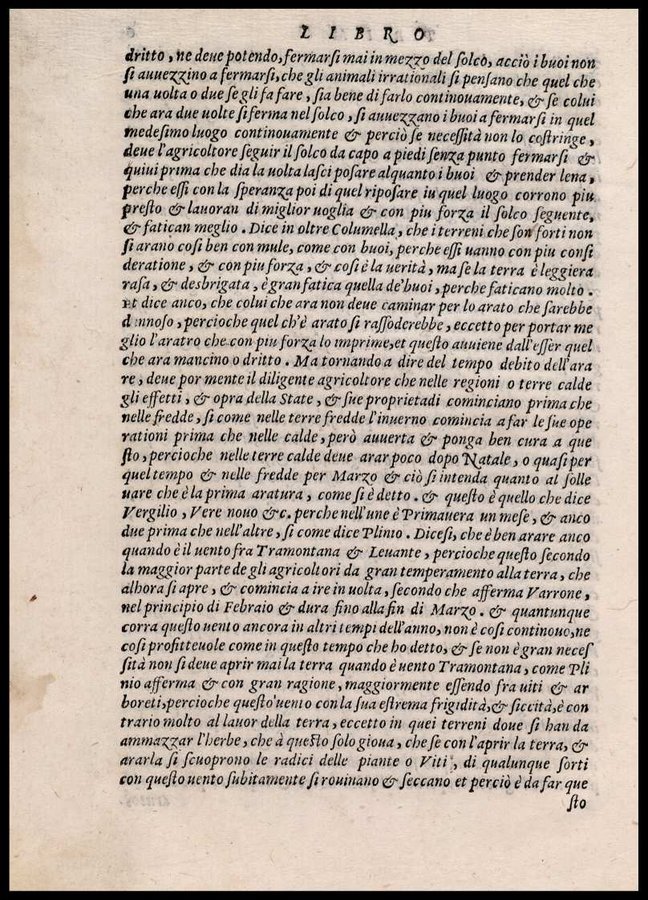 LIBRO
dritto, ne deue potendo, fermarsi mai in mezzo del solco, acciò i buoi non
si auuezzino a fermarsi, che gli animali irrationali si pensano che quel che
una uolta o due se gli fa fare, sia bene di farlo continouamente, & se colui
che ara due uolte si ferma nel solco, si auuezzano i buoi a fermarsi in quel
medesimo luogo continouamente & perciò se necessità non lo costringe,
deue l'agricoltore seguir il solco da capo a piedi senza punto fermarsi &
quiui prima che dia la uolta lasci posare alquanto i buoi & prender lena,
perche essi con la speranza poi di quel riposare iu quel luogo corrono piu
presto & lauoran di miglior uoglia & con piu forza il solco seguente,
& fatican meglio. Dice in oltre Columella, che i terreni che son forti non
si arano cosi ben con mule, come con buoi, perche essi uanno con piu consi
deratione, & con piu forza, & cosi è la uerità, ma se la terra è leggiera
rasa, & desbrigata, è gran fatica quella de'buoi, perche faticano molto.
Et dice anco, che colui che ara non deue caminar per lo arato che sarebbe
dannoso, percioche quel ch'è arato si rassoderebbe, eccetto per portar me
glio l'aratro che con piu forza lo imprime, et questo auuiene dall'esser quel
che ara mancino o dritto. Ma tornando a dire del tempo debito dell'ara
re, deue por mente il diligente agricoltore che nelle regioni o terre calde
gli effetti, & opra della State, & sue proprietadi cominciano prima che
nelle fredde, si come nelle terre fredde l'inuerno comincia a far le sue ope
rationi prima che nelle calde, però auuerta & ponga ben cura a que
sto, percioche nelle terre calde deue arar poco dopo Natale, o quasi per
quel tempo & nelle fredde per Marzo & ciò si intenda quanto al solle
uare che è la prima aratura, come si è detto. & questo è quello che dice
Vergilio, Vere nouo &c. perche nell'une è Primauera un mese, & anco
due prima che nell'altre, si come dice Plinio. Dicesi, che è ben arare anco
quando è il uento fra Tramontana & Leuante, percioche questo secondo
la maggior parte de gli agricoltori da gran temperamento alla terra, che
alhora si apre, & comincia a ire in uolta, secondo che afferma Varrone,
nel principio di Febraio & dura fino alla fin di Marzo. & quantunque
corra questo uento ancora in altri tempi dell'anno, non è cosi continouo, ne
cosi profitteuole come in questo tempo che ho detto, & se non è gran neces
sità non si deue aprir mai la terra quando è uento Tramontana, come Pli
nio afferma & con gran ragione, maggiormente essendo fra uiti & ar
boreti, percioche questo uento con la sua estrema frigidità, & siccità, è con
trario molto al lauor della terra, eccetto in quei terreni doue si han da
ammazzar l'herbe, che à questo solo gioua, che se con l'aprir la terra, &
ararla si scuoprono le radici delle piante o Viti, di qualunque sorti
con questo uento subitamente si rouinano & seccano et perciò è da far que
sto